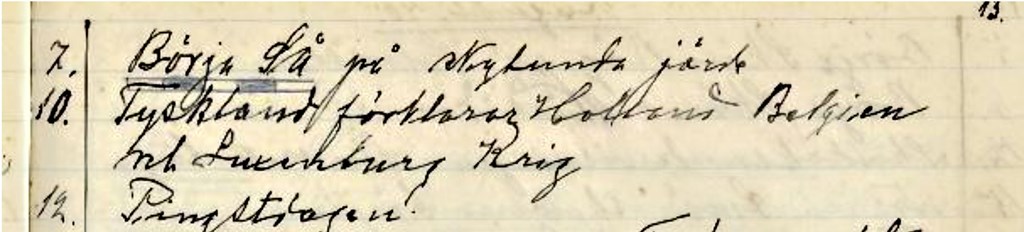 13.
7. Börja Så på Nybunda järde
10. Tyskland förklarar Holland Belgien
och Luxenburg Krig
12. Pingstdagen.